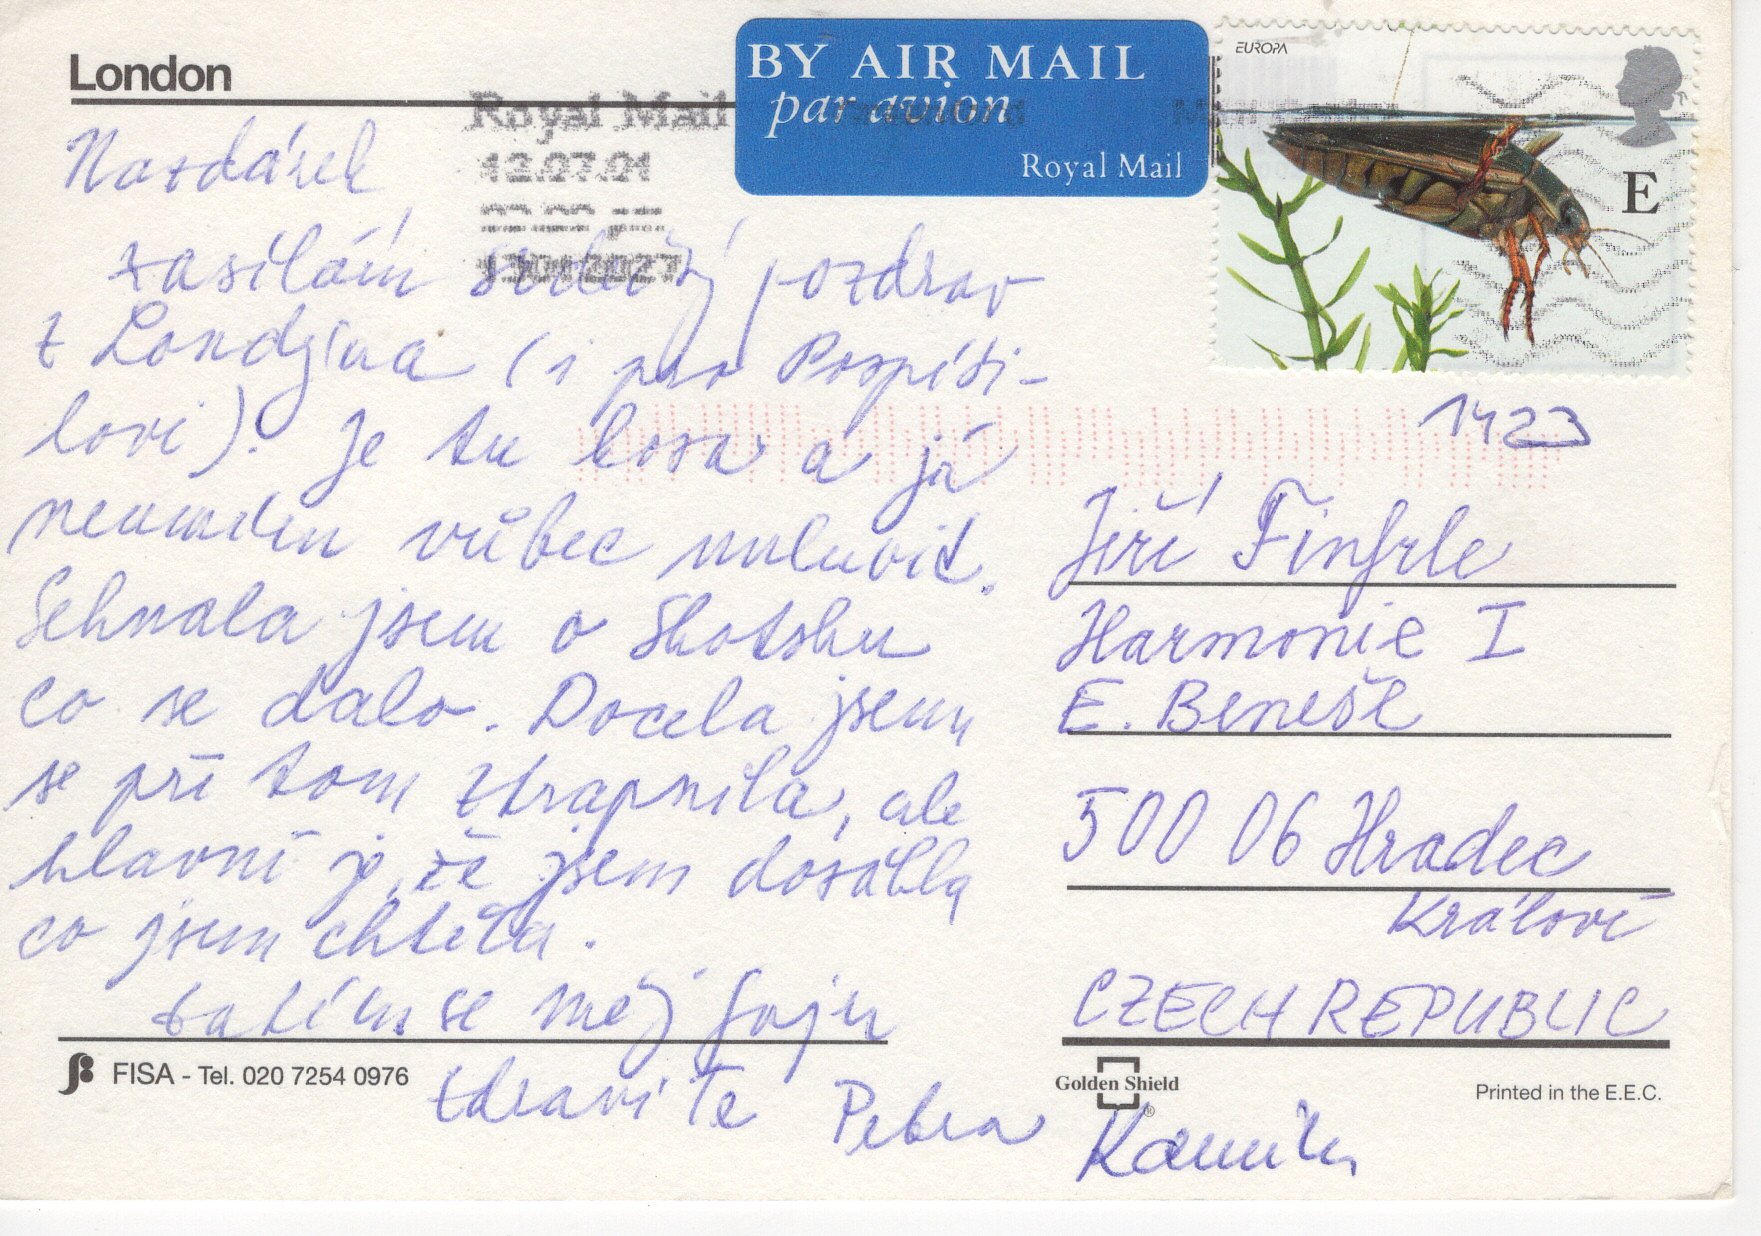 London
BY AIR MAIL
par avion
Royal Mail
EUROPA
E
Royal Mail
12.07.01
Nazdárek
zasílám srdečný pozdrav
z Londýna (i pro Pospíši-
lovi). Je tu kosa a já
neumím vůbec mluvit.
Sehnala jsem o Skotsku
co se dalo. Docela jsem
se při tom ztrapnila, ale
hlavní je, že jsem dosáhla
co jsem chtěla.
Zatím se měj fajn
zdraví Tě Petra
Kamila
1423
Jiří Finfrle
Harmonie I
E. Beneše
500 06 Hradec
Králové
CZECH REPUBLIC
FISA - Tel. 020 7254 0976
Golden Shield
Printed in the E.E.C.